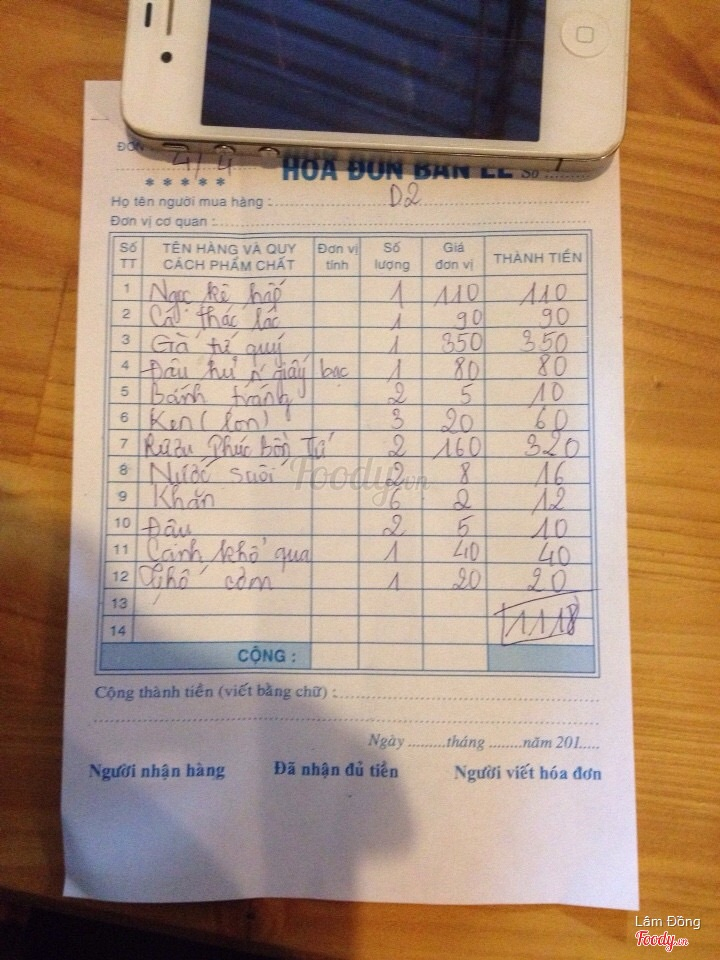 ĐƠN
4/4
HÓA ĐƠN BÁN LẺ Số :
*****
Họ tên người mua hàng : D2
Đơn vị cơ quan :
Số TT TÊN HÀNG VÀ QUY CÁCH PHẨM CHẤT Đơn vị tính Số lượng Giá đơn vị THÀNH TIỀN
1 hấp 1 110 110
2 Cá thác lác 1 90 90
3 Gà tứ quý 1 350 350
4 Đậu hủ giấy bạc 1 80 80
5 Bánh tráng 2 5 10
6 Ken (lon) 3 20 60
7 Rượu Phúc Bồn Tử 2 160 320
8 Nước suối 2 8 16
9 Khăn 6 2 12
10 Đậu 2 5 10
11 Canh khổ qua 1 40 40
12 cơm 1 20 20
13
14 1118
CỘNG :
Cộng thành tiền (viết bằng chữ) :
Ngày ........tháng ........năm 201.....
Người nhận hàng Đã nhận đủ tiền Người viết hóa đơn
Foody.vn
Lâm Đồng
Foody.vn